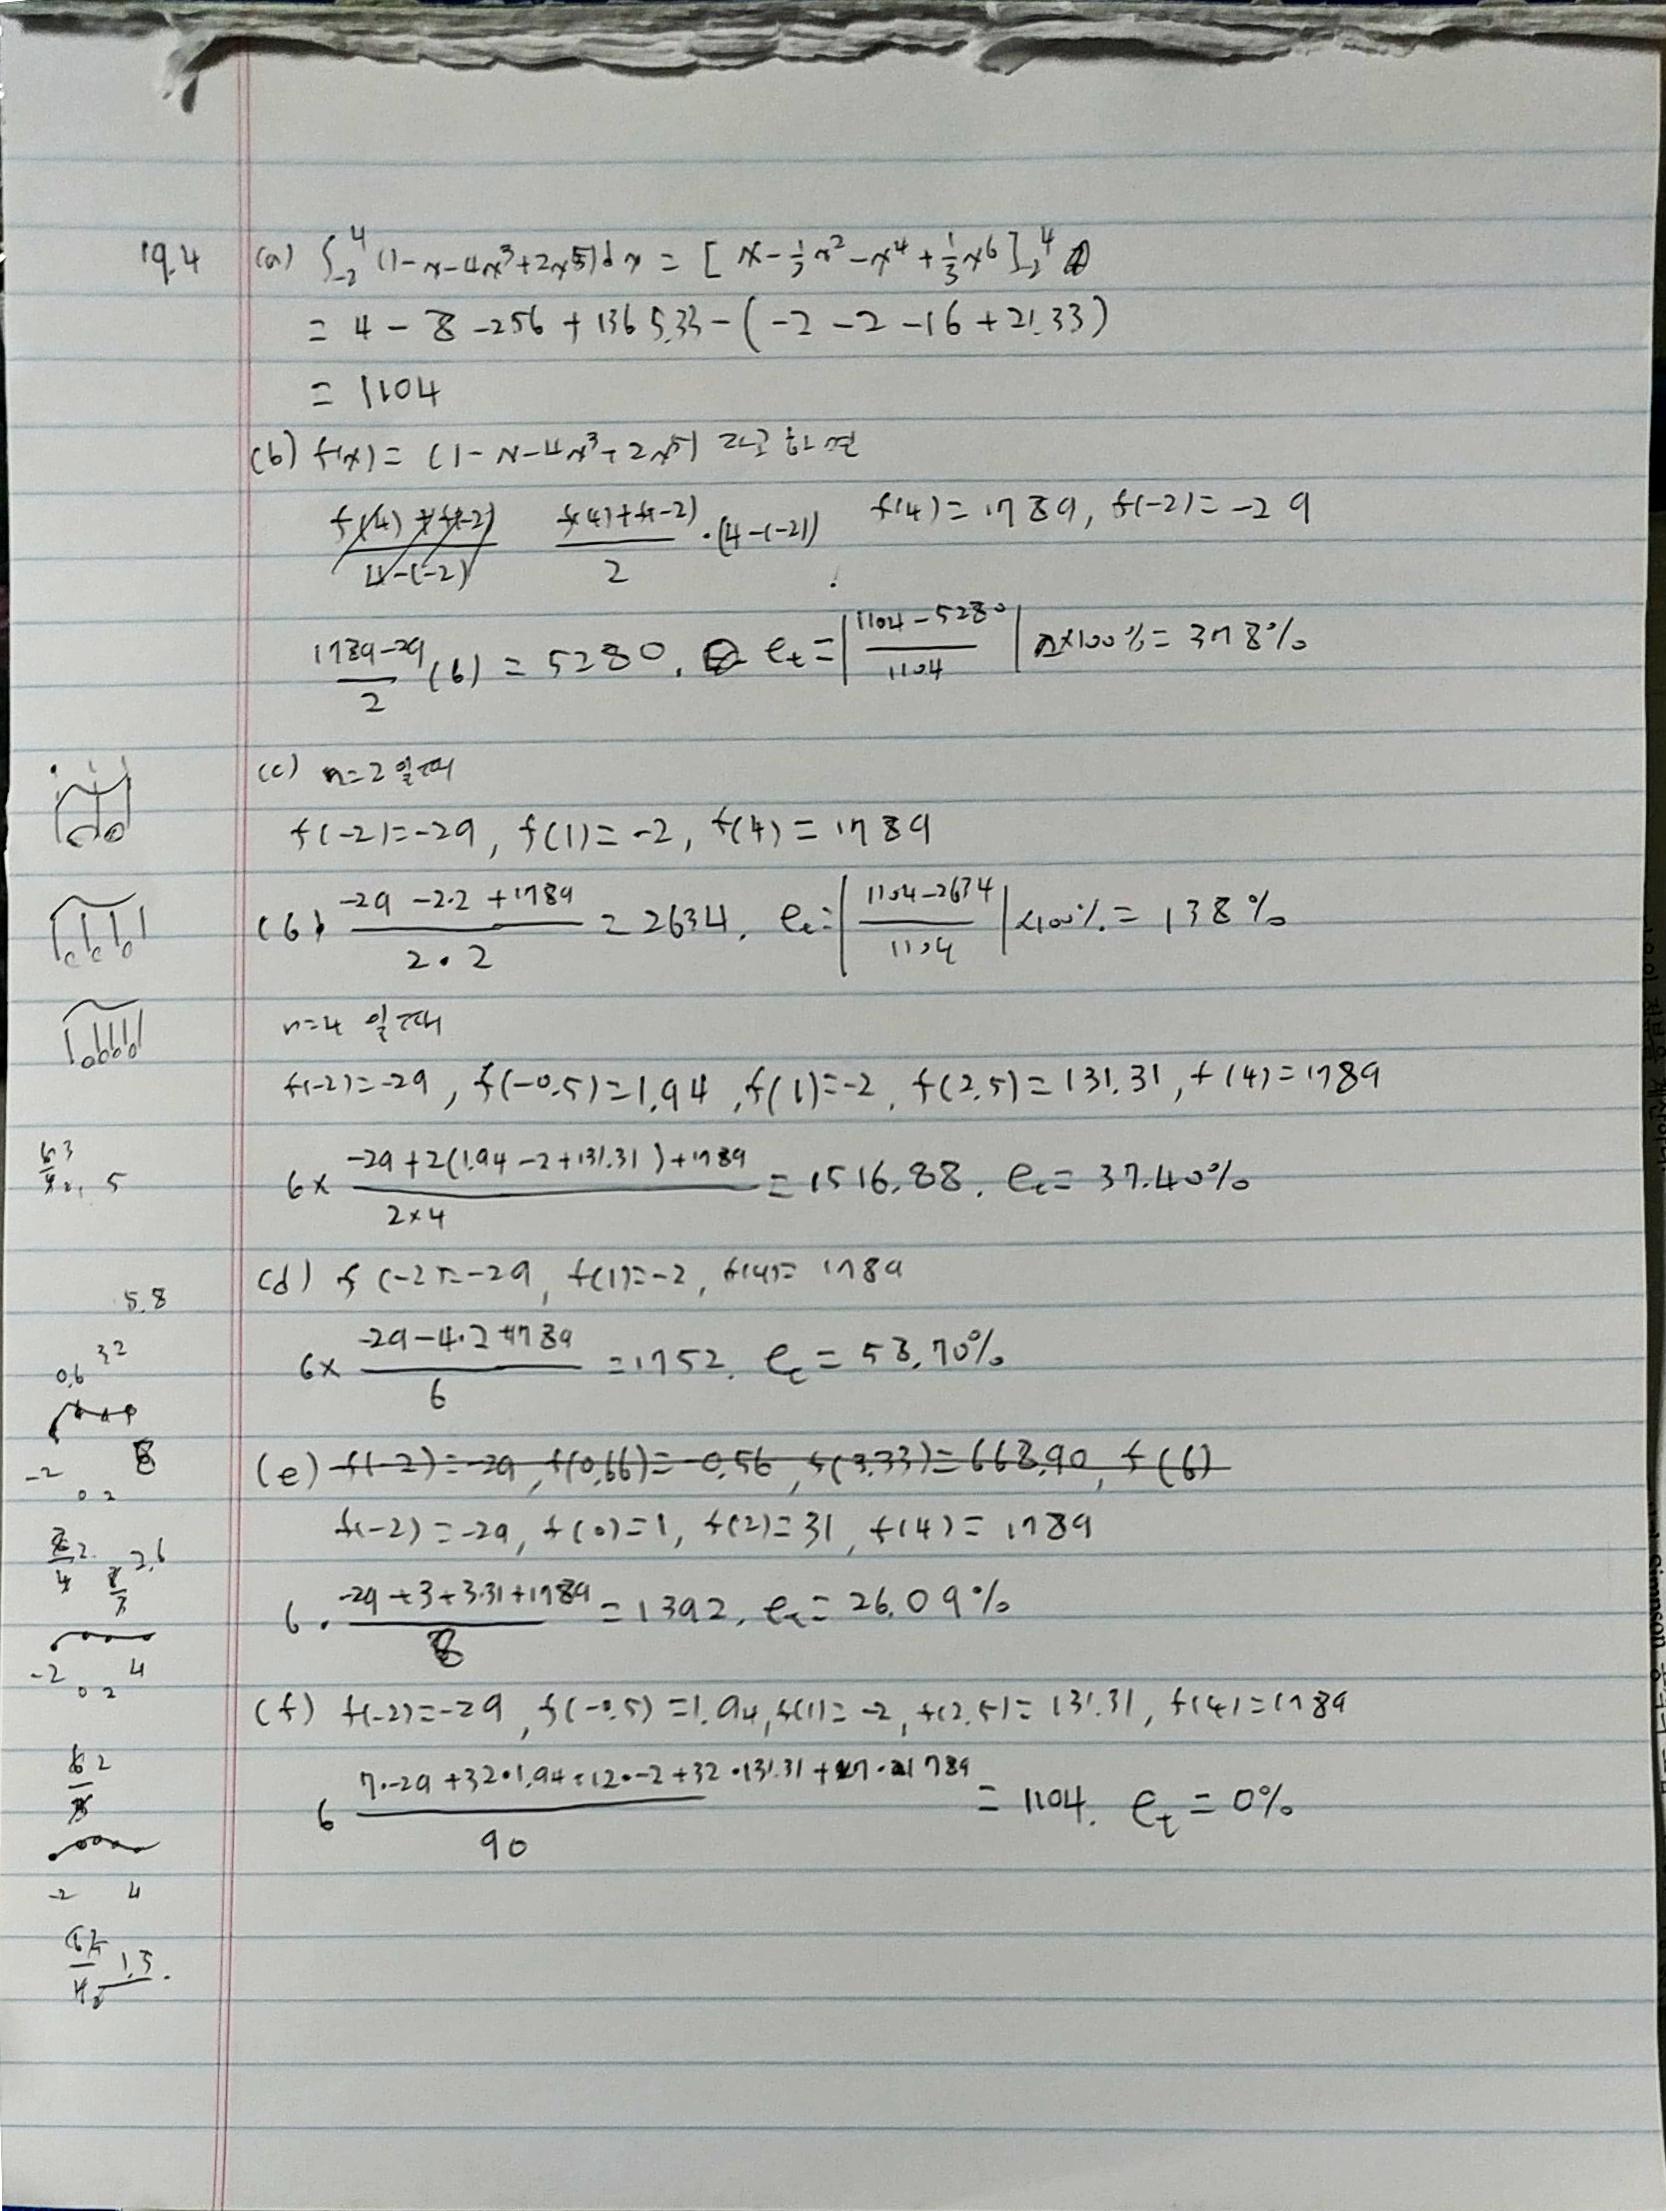 19.4 (a) ∫₋₂⁴ (1-x-4x³+2x⁵)dx = [x-½x²-x⁴+⅓x⁶]₋₂⁴
= 4 - 8 - 256 + 1365.33 - (-2 -2 -16 + 21.33)
= 1104
(b) f(x) = (1-x-4x³+2x⁵) 라고 하면
(f(4)+f(-2))/2 · (4-(-2)) f(4) = 1789, f(-2) = -29
(1789-29)/2 (6) = 5280. e_t = |(1104-5280)/1104| ×100% = 378%
(c) n=2 일 때
f(-2)=-29, f(1)=-2, f(4)=1789
(6) (-29 -2·2 +1789)/(2·2) = 2634. e_t = |(1104-2634)/1104| ×100% = 138%
n=4 일 때
f(-2)=-29, f(-0.5)=1.94, f(1)=-2, f(2.5)=131.31, f(4)=1789
6× (-29+2(1.94-2+131.31)+1789)/(2×4) = 1516.88. e_t = 37.40%
(d) f(-2)=-29, f(1)=-2, f(4)=1789
6× (-29-4·2+1789)/6 = 1752. e_t = 58.70%
(e) f(-2)=-29, f(0.66)=-0.56, f(3.33)=668.90, f(6)
f(-2)=-29, f(0)=1, f(2)=31, f(4)=1789
6· (-29+3+3·31+1789)/8 = 1392. e_t = 26.09%
(f) f(-2)=-29, f(-0.5)=1.94, f(1)=-2, f(2.5)=131.31, f(4)=1789
6 (7·-29+32·1.94+12·-2+32·131.31+7·1789)/90 = 1104. e_t = 0%
5
5.8
0.6 3.2
-2 8
0 2
2.6
-2 4
0 2
-2 4
1.5